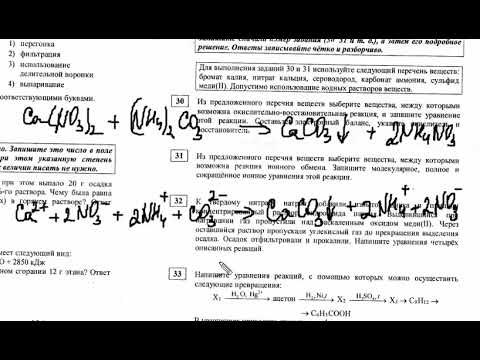 1) перегонка
2) фильтрация
3) использование
делительной воронки
4) выпаривание
соответствующими буквами.
решение. Ответы записывайте чётко и разборчиво.
Для выполнения заданий 30 и 31 используйте следующий перечень веществ:
бромат калия, нитрат кальция, сероводород, карбонат аммония, сульфид
меди(II). Допустимо использование водных растворов веществ.
30
Из предложенного перечня веществ выберите вещества, между которыми
возможна окислительно-восстановительная реакция, и запишите уравнение
этой реакции. Составьте электронный баланс, укажите окислитель и
восстановитель.
Ca(NO3)2 + (NH4)2CO3 → CaCO3↓ + 2NH4NO3
Запишите это число в поле
при этом указанную степень
величин писать не нужно.
31
Из предложенного перечня веществ выберите вещества, между которыми
возможна реакция ионного обмена. Запишите молекулярное, полное и
сокращённое ионное уравнения этой реакции.
при этом выпало 20 г осадка
-го раствора? Чему была равна
х) в горячем растворе?
32
К твердому нитрату
Ca2+ + 2NO3− + 2NH4+ + CO32− → CaCO3↓ + 2NH4+ + 2NO3−
газ пропустили над раскаленным оксидом меди(II). Через
оставшийся раствор пропускали углекислый газ до прекращения выделения
осадка. Осадок отфильтровали и прокалили. Напишите уравнения четырёх
описанных реакций.
имеет следующий вид:
O + 2850 кДж
ном сгорании 12 г этана? Ответ
33
Напишите уравнения реакций, с помощью которых можно осуществить
следующие превращения:
X1 H2O, Hg2+ → ацетон H2, Ni, t → X2 H2SO4, t → X3 → C6H12 →
→ C6H5COOH